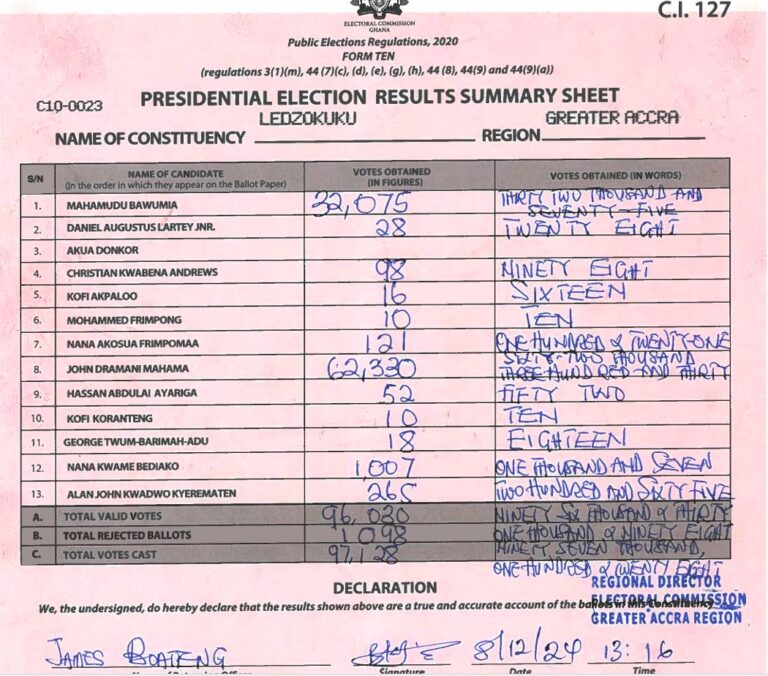 C.I. 127
ELECTORAL COMMISSION
GHANA
Public Elections Regulations, 2020
FORM TEN
(regulations 3(1)(m), 44 (7)(c), (d), (e), (g), (h), 44 (8), 44(9) and 44(9)(a))
C10-0023
PRESIDENTIAL ELECTION RESULTS SUMMARY SHEET
NAME OF CONSTITUENCY LEDZOKUKU REGION GREATER ACCRA
S/N NAME OF CANDIDATE (In the order in which they appear on the Ballot Paper) VOTES OBTAINED (IN FIGURES) VOTES OBTAINED (IN WORDS)
1. MAHAMUDU BAWUMIA 32,075 THIRTY TWO THOUSAND AND SEVENTY-FIVE
2. DANIEL AUGUSTUS LARTEY JNR. 28 TWENTY EIGHT
3. AKUA DONKOR
4. CHRISTIAN KWABENA ANDREWS 98 NINETY EIGHT
5. KOFI AKPALOO 16 SIXTEEN
6. MOHAMMED FRIMPONG 10 TEN
7. NANA AKOSUA FRIMPOMAA 121 ONE HUNDRED & TWENTY-ONE
8. JOHN DRAMANI MAHAMA 62,330 SIXTY-TWO THOUSAND THREE HUNDRED AND THIRTY
9. HASSAN ABDULAI AYARIGA 52 FIFTY TWO
10. KOFI KORANTENG 10 TEN
11. GEORGE TWUM-BARIMAH-ADU 18 EIGHTEEN
12. NANA KWAME BEDIAKO 1,007 ONE THOUSAND AND SEVEN
13. ALAN JOHN KWADWO KYEREMATEN 265 TWO HUNDRED AND SIXTY FIVE
A. TOTAL VALID VOTES 96,030 NINETY SIX THOUSAND & THIRTY
B. TOTAL REJECTED BALLOTS 1,098 ONE THOUSAND & NINETY EIGHT
C. TOTAL VOTES CAST 97,128 NINETY SEVEN THOUSAND, ONE HUNDRED & TWENTY EIGHT
DECLARATION
We, the undersigned, do hereby declare that the results shown above are a true and accurate account of the ballots in this Constituency
REGIONAL DIRECTOR
ELECTORAL COMMISSION
GREATER ACCRA REGION
JAMES BOATENG 8/12/24 13:16
Signature Date Time